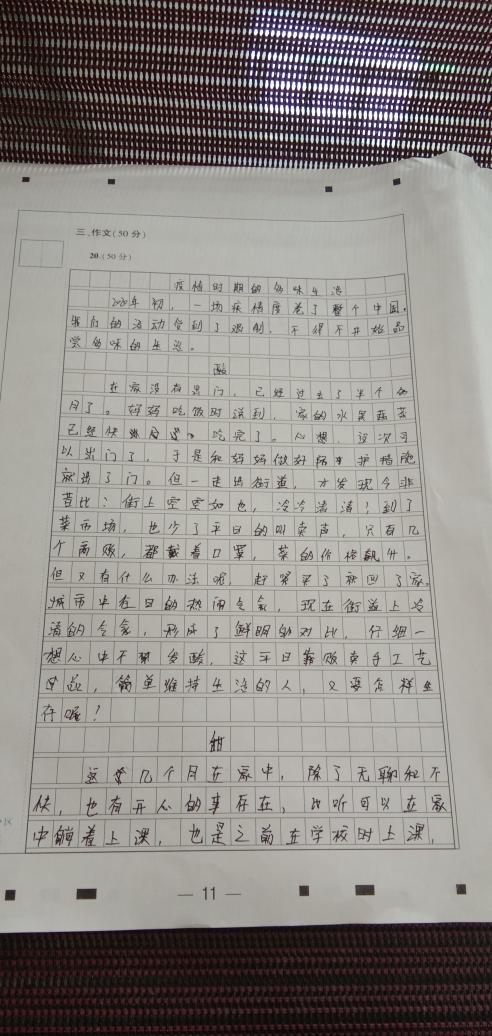 三、作文(50分)
20.(50分)
疫情时期的多味生活
2020年初，一场疫情席卷了整个中国。
我们的活动受到了限制，不得不开始品
尝多味的生活。
酸
在家没有出门，已经过去了半个多
月了。妈妈吃饭时说到，家的水果蔬菜
已经快吃完了。心想，这次可
以出门了，于是和妈妈做好防护措施
就出了门。但一走出街道，才发现今非
昔比：街上空空如也，冷冷清清！到了
菜市场，也少了平日的叫卖声，只有几
个商贩，都戴着口罩，菜的价格飙升。
但又有什么办法呢，赶紧买了就回了家。
城市中往日的热闹气氛，现在街道上冷
清的气氛，形成了鲜明的对比，仔细一
想心中不禁发酸，这平日靠贩卖手工艺
，简单维持生活的人，又要怎样生
存呢！
甜
这几个月在家中，除了无聊和不
快，也有开心的事存在，可以在家
中躺着上课，也是之前在学校时上课，
— 11 —